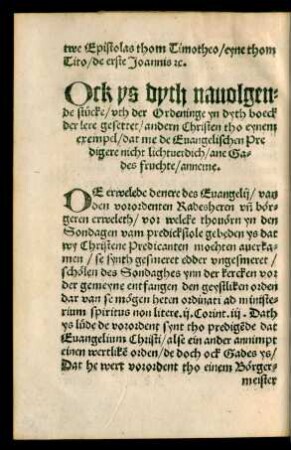 twe Epistolas thom Timotheo/eyne thom
Tito/de erste Joannis ꝛc.
Ock ys dyth navolgen-
de stücke/vth der Ordeninge yn dyth boeck
der lere gesettet/andern Christen tho eynem
exempel/dat me de Euangelischen Pre
digere nicht lichtuerdich/ane Ga-
des fruchte/anneme.
DE erwelede denere des Euangelij/van
den vorordenten Radesheren vñ bör-
geren erweleth/vor welcke thouörn yn den
Sondagen vam predickstole gebeden ys dat
wy Christene Predicanten mochten auerka-
men/se synth gesmeret edder vngesmeret/
schölen des Sondaghes ynn der kercken vor
der gemeyne entfangen den geystliken orden
dat van se mögen heten ordinati ad ministe-
rium spiritus non litere.ij.Corint.iij. Dath
ys lüde de vorordent synt tho predigẽde dat
Euangelium Christi/alse ein ander annimpt
einen wertlikẽ orden/de doch ock Gades ys/
Dat he wert vorordent tho einem Börger-
meister